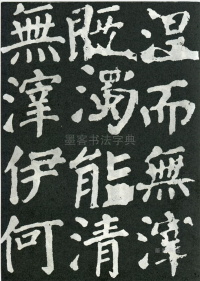 涅而無滓
既濁能清
無滓伊何
墨客书法字典